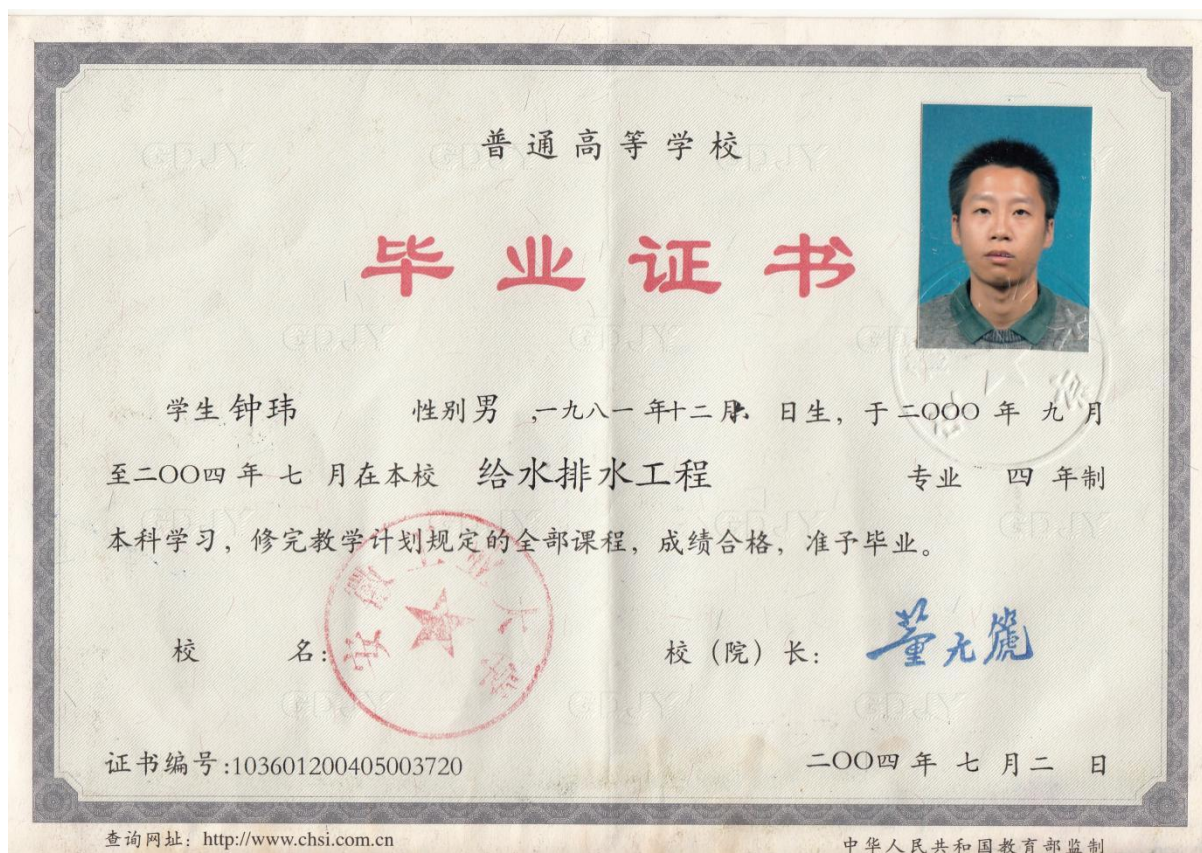 普通高等学校
毕业证书
学生 钟玮 性别 男 ,一九八一 年十二月 日生, 于二〇〇〇 年 九 月
至二〇〇四 年 七 月在本校 给水排水工程 专业 四 年制
本科学习, 修完教学计划规定的全部课程, 成绩合格, 准予毕业。
安徽工业大学
校 名:
校 (院) 长: 董元篪
证书编号:103601200405003720
二〇〇四 年 七 月 二 日
查询网址: http://www.chsi.com.cn
中华人民共和国教育部监制
GDJY